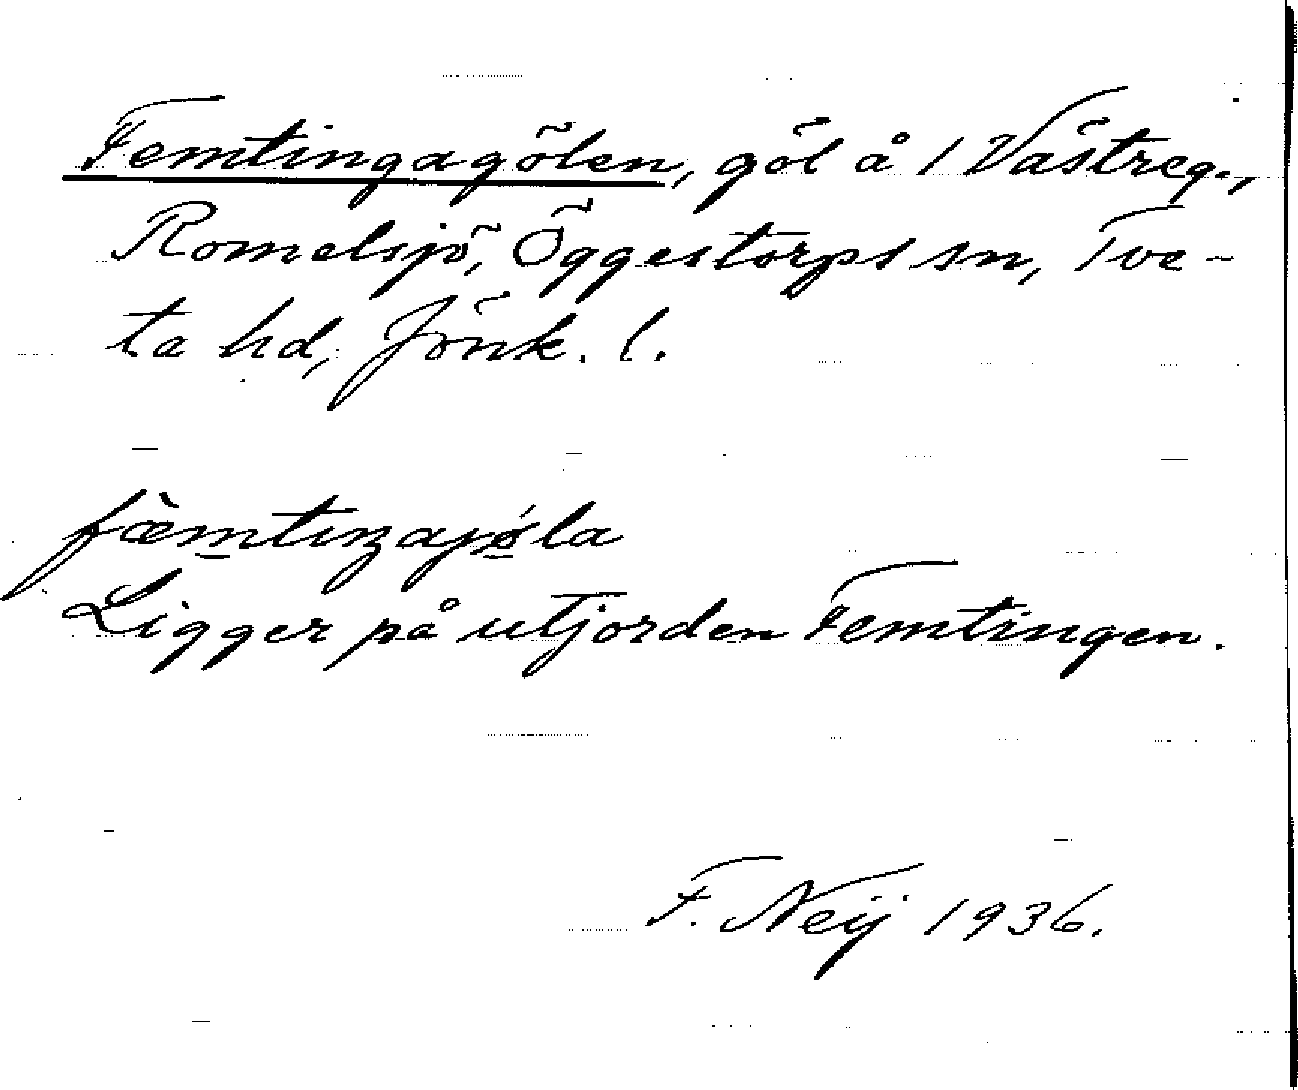 Femtingagölen, göl å 1 Västreg.,
Romelsjö, Öggestorps sn, Tve-
ta hd, Jönk. l.
fæ̀mtıŋajǿla
Ligger på utjorden Femtingen.
F. Neij 1936.